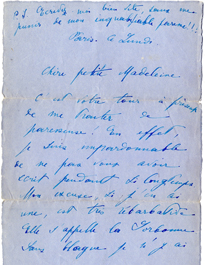 P.S. Ecrivez moi bien vite, sans me
punir de mon inqualifiable paresse!!
Paris. le Lundi.
Chère petite Madeleine
C'est votre tour à présent
de me traiter de
paresseuse! En effet,
je suis impardonnable
de ne pas vous avoir
écrit pendant si longtemps
Mon excuse, si j'en ai
une, est très
Elle s'appelle la Sorbonne
Sans blague je n'y ai